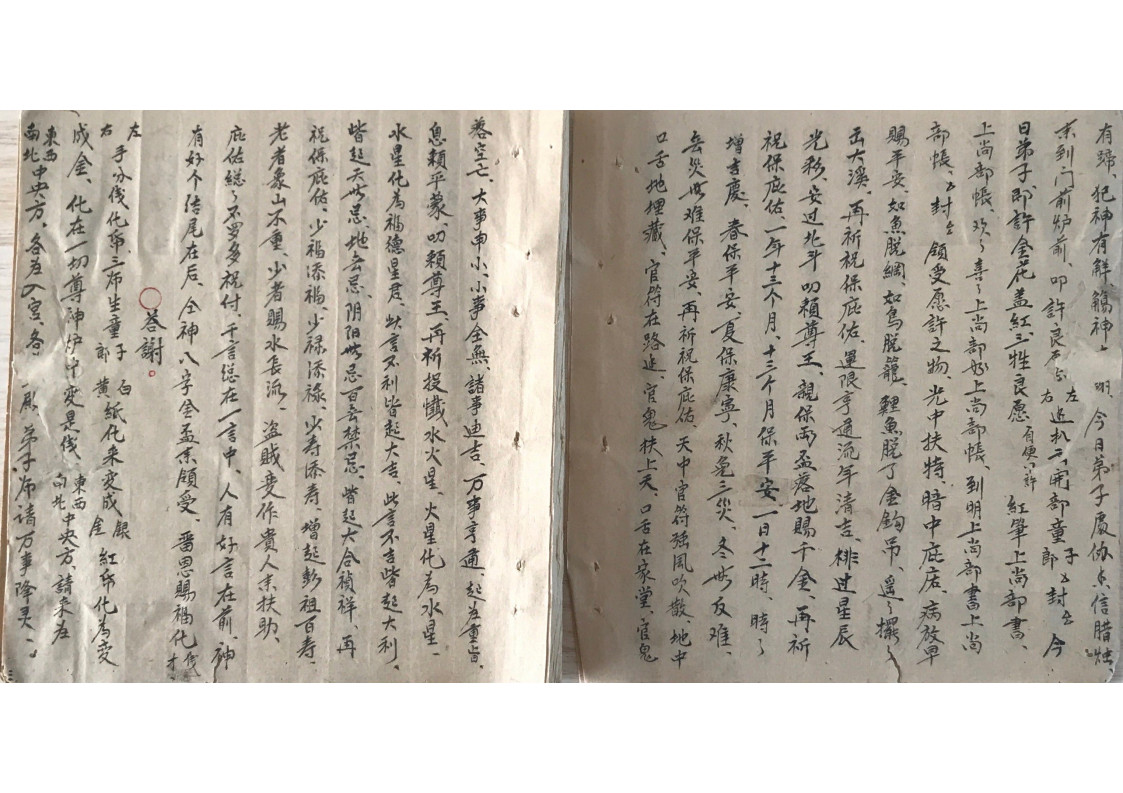 有歸、犯神有觧觴神、明、今日弟子虔俻、信腊燭、
来到门前炉前叩許良、左右追扒、開部童子郎封、今
日弟子即許金花盖紅三牲良愿有便小許紅筆上尚部書、
上尚部帳、欢〻喜〻上尚部好上尚部帳、到明上尚部書上尚
部帳、封領受愿許之物、光中扶持、暗中庇佑、病放早
賜平安、如魚脱網、如鸟脱籠、鯉魚脱了金鈎吊、遥〻擺〻
去大溪、再祈祝保庇佑、運限亨通流年清吉、排过星辰
光彩、安过北斗叩頼尊王、親保兩盃落地賜千金、再祈
祝保庇佑、一年十二个月、十三个月保平安、一日十二時、時〻
增吉慶、春保平安、夏保康寧、秋免三災、冬無反难、
無災無难保平安、再祈祝保庇佑、天中官符強風吹散、地中
口舌地埋藏、官符在路边、官鬼扶上天、口舌在家堂、官鬼
落空亡、大事申小、小事全無、諸事迪吉、万事亨通、起為重皆、
息頼平蒙、叨頼尊王、再祈投懺水火星、火星化為水星、
水星化為福德星君、此言不利皆起大吉、此言不吉皆起大利、
皆起天無忌、地無忌、阴阳無忌百無禁忌、皆起大合禎祥、再
祝保庇佑、少福添福、少禄添祿、少寿添寿、增延彭祖百寿、
老者象山不重、少者賜水長流、盗賊变作貴人来扶助、
庇佑総〻不要多祝付、千言総在一言中、人有好言在前、神
有好个结尾在后、全神八字金盃来領受、番恩賜福化錢才、
荅謝
左右手分伐化第三布生童子郎白黄紙化来变成銀金紅帋化為变
成金、化在一切尊神炉中变是伐、東西南北中央方、請来為
東西南北中央方、各為入宫、各一厰弟子师請万事降灵、